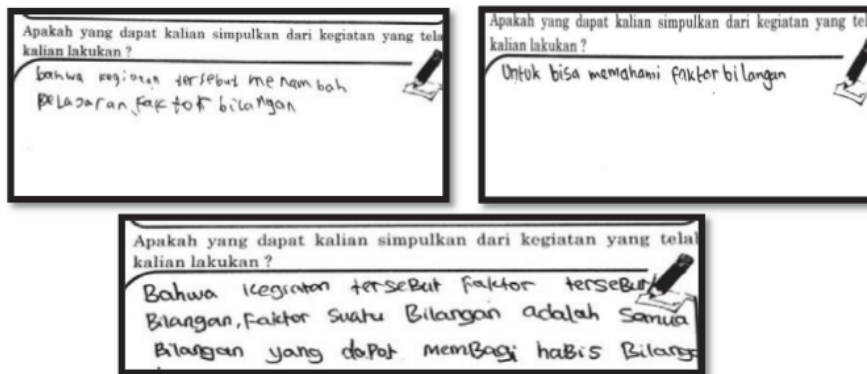 Apakah yang dapat kalian simpulkan dari kegiatan yang tela
kalian lakukan ?
bahwa kegiatan tersebut menambah
peLajaran Faktor bilangan
Apakah yang dapat kalian simpulkan dari kegiatan yang tel
kalian lakukan ?
Untuk bisa memahami faktor bilangan
Apakah yang dapat kalian simpulkan dari kegiatan yang telal
kalian lakukan ?
Bahwa kegiatan terseBut Faktor terseBut
Bilangan, Faktor Suatu Bilangan adalah Semua
Bilangan yang daPat memBagi haBis Bilanga